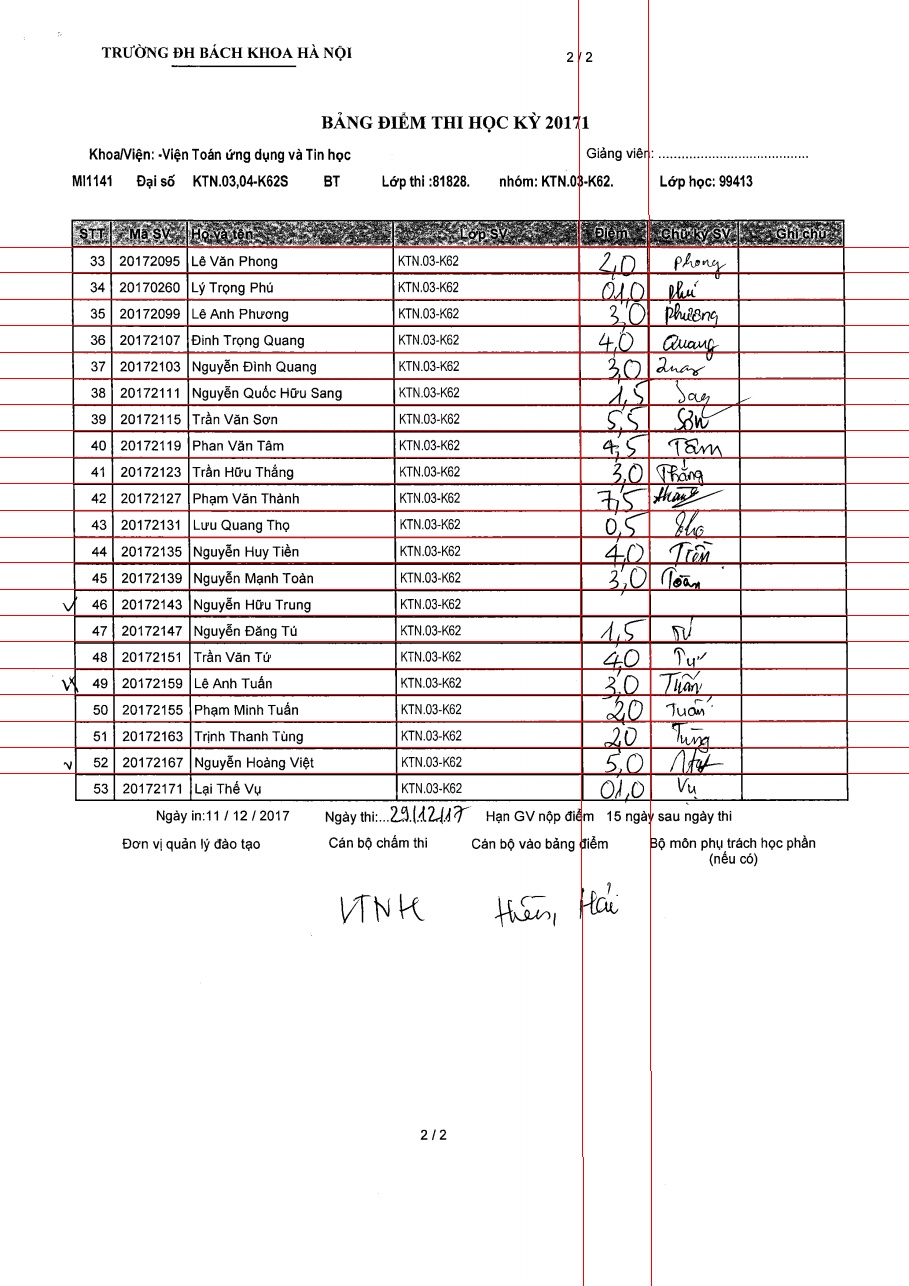 TRƯỜNG ĐH BÁCH KHOA HÀ NỘI 2 / 2
BẢNG ĐIỂM THI HỌC KỲ 20171
Khoa/Viện: -Viện Toán ứng dụng và Tin học Giảng viên: .......................................
MI1141 Đại số KTN.03,04-K62S BT Lớp thi :81828. nhóm: KTN.03-K62. Lớp học: 99413
STT Mã SV Họ và tên Lớp SV Điểm Chữ ký SV Ghi chú
33 20172095 Lê Văn Phong KTN.03-K62 2,0 Phong
34 20170260 Lý Trọng Phú KTN.03-K62 01,0 Phú
35 20172099 Lê Anh Phương KTN.03-K62 3,0 Phương
36 20172107 Đinh Trọng Quang KTN.03-K62 4,0 Quang
37 20172103 Nguyễn Đình Quang KTN.03-K62 3,0 Quang
38 20172111 Nguyễn Quốc Hữu Sang KTN.03-K62 1,5 Sang
39 20172115 Trần Văn Sơn KTN.03-K62 5,5 Sơn
40 20172119 Phan Văn Tâm KTN.03-K62 4,5 Tâm
41 20172123 Trần Hữu Thắng KTN.03-K62 3,0 Thắng
42 20172127 Phạm Văn Thành KTN.03-K62 7,5 Thành
43 20172131 Lưu Quang Thọ KTN.03-K62 0,5 Thọ
44 20172135 Nguyễn Huy Tiền KTN.03-K62 4,0 Tiền
45 20172139 Nguyễn Mạnh Toàn KTN.03-K62 3,0 Toàn
46 20172143 Nguyễn Hữu Trung KTN.03-K62
47 20172147 Nguyễn Đăng Tú KTN.03-K62 1,5 Tú
48 20172151 Trần Văn Tứ KTN.03-K62 4,0 Tứ
49 20172159 Lê Anh Tuấn KTN.03-K62 3,0 Tuấn
50 20172155 Phạm Minh Tuấn KTN.03-K62 2,0 Tuấn
51 20172163 Trịnh Thanh Tùng KTN.03-K62 2,0 Tùng
52 20172167 Nguyễn Hoàng Việt KTN.03-K62 5,0
53 20172171 Lại Thế Vụ KTN.03-K62 01,0 Vụ
Ngày in:11 / 12 / 2017 Ngày thi:...29/12/17 Hạn GV nộp điểm 15 ngày sau ngày thi
Đơn vị quản lý đào tạo Cán bộ chấm thi Cán bộ vào bảng điểm Bộ môn phụ trách học phần
(nếu có)
VTNH Hiền, Hải
2 / 2